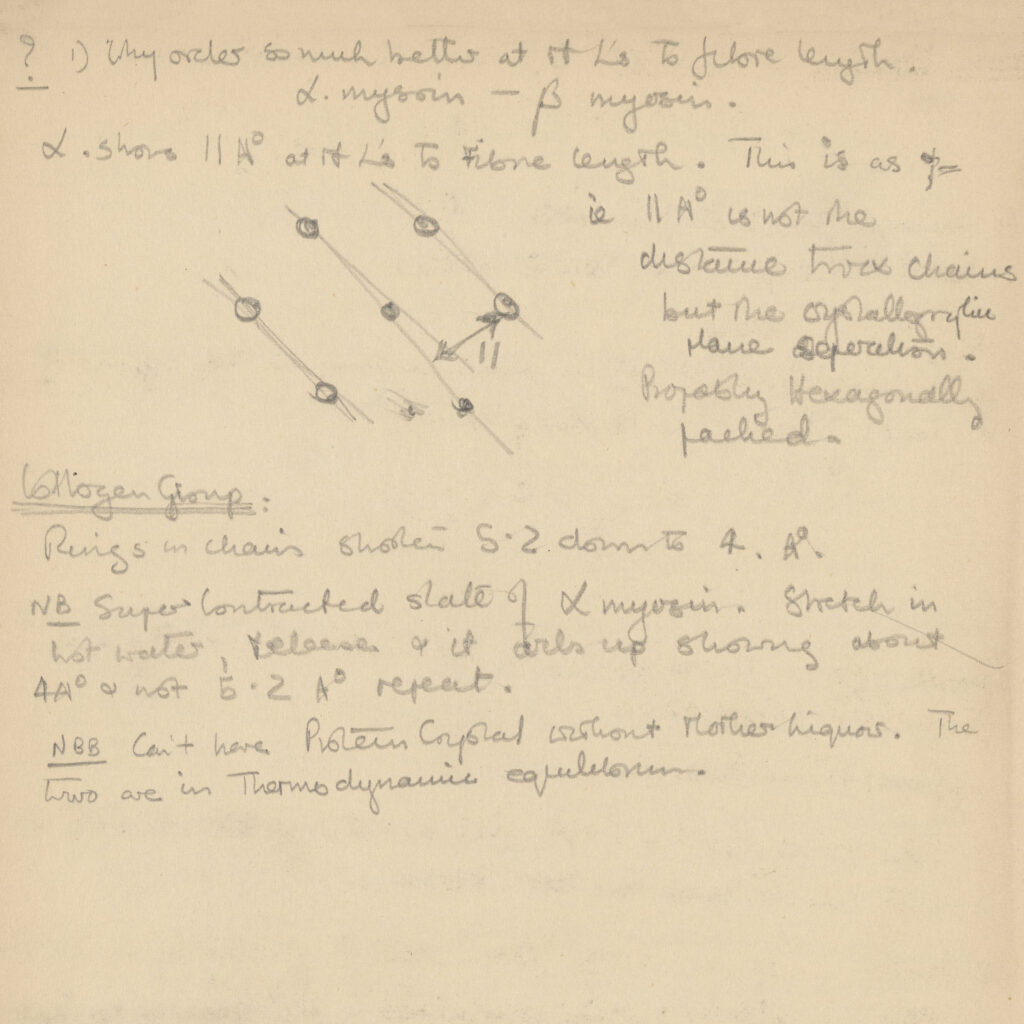 ? 1) Why order so much better at rt L's to fibre length.
α. myosin — β myosin.
α. shows 11 A° at rt L's to Fibre length. This is as
ie 11 A° is not the
distance twix chains
but the crystallographic
plane seperation.
11
Probably Hexagonally
packed.
Collogen Group:
Rings in chains shorten 5·2 down to 4. A°.
NB Super Contracted state of α myosin. Stretch in
hot water, release & it curls up showing about
4A° & not 5·2 A° repeat.
NBB Can't have Protein Crystal without Mother Liquor. The
two are in Thermodynamic equilibrium.